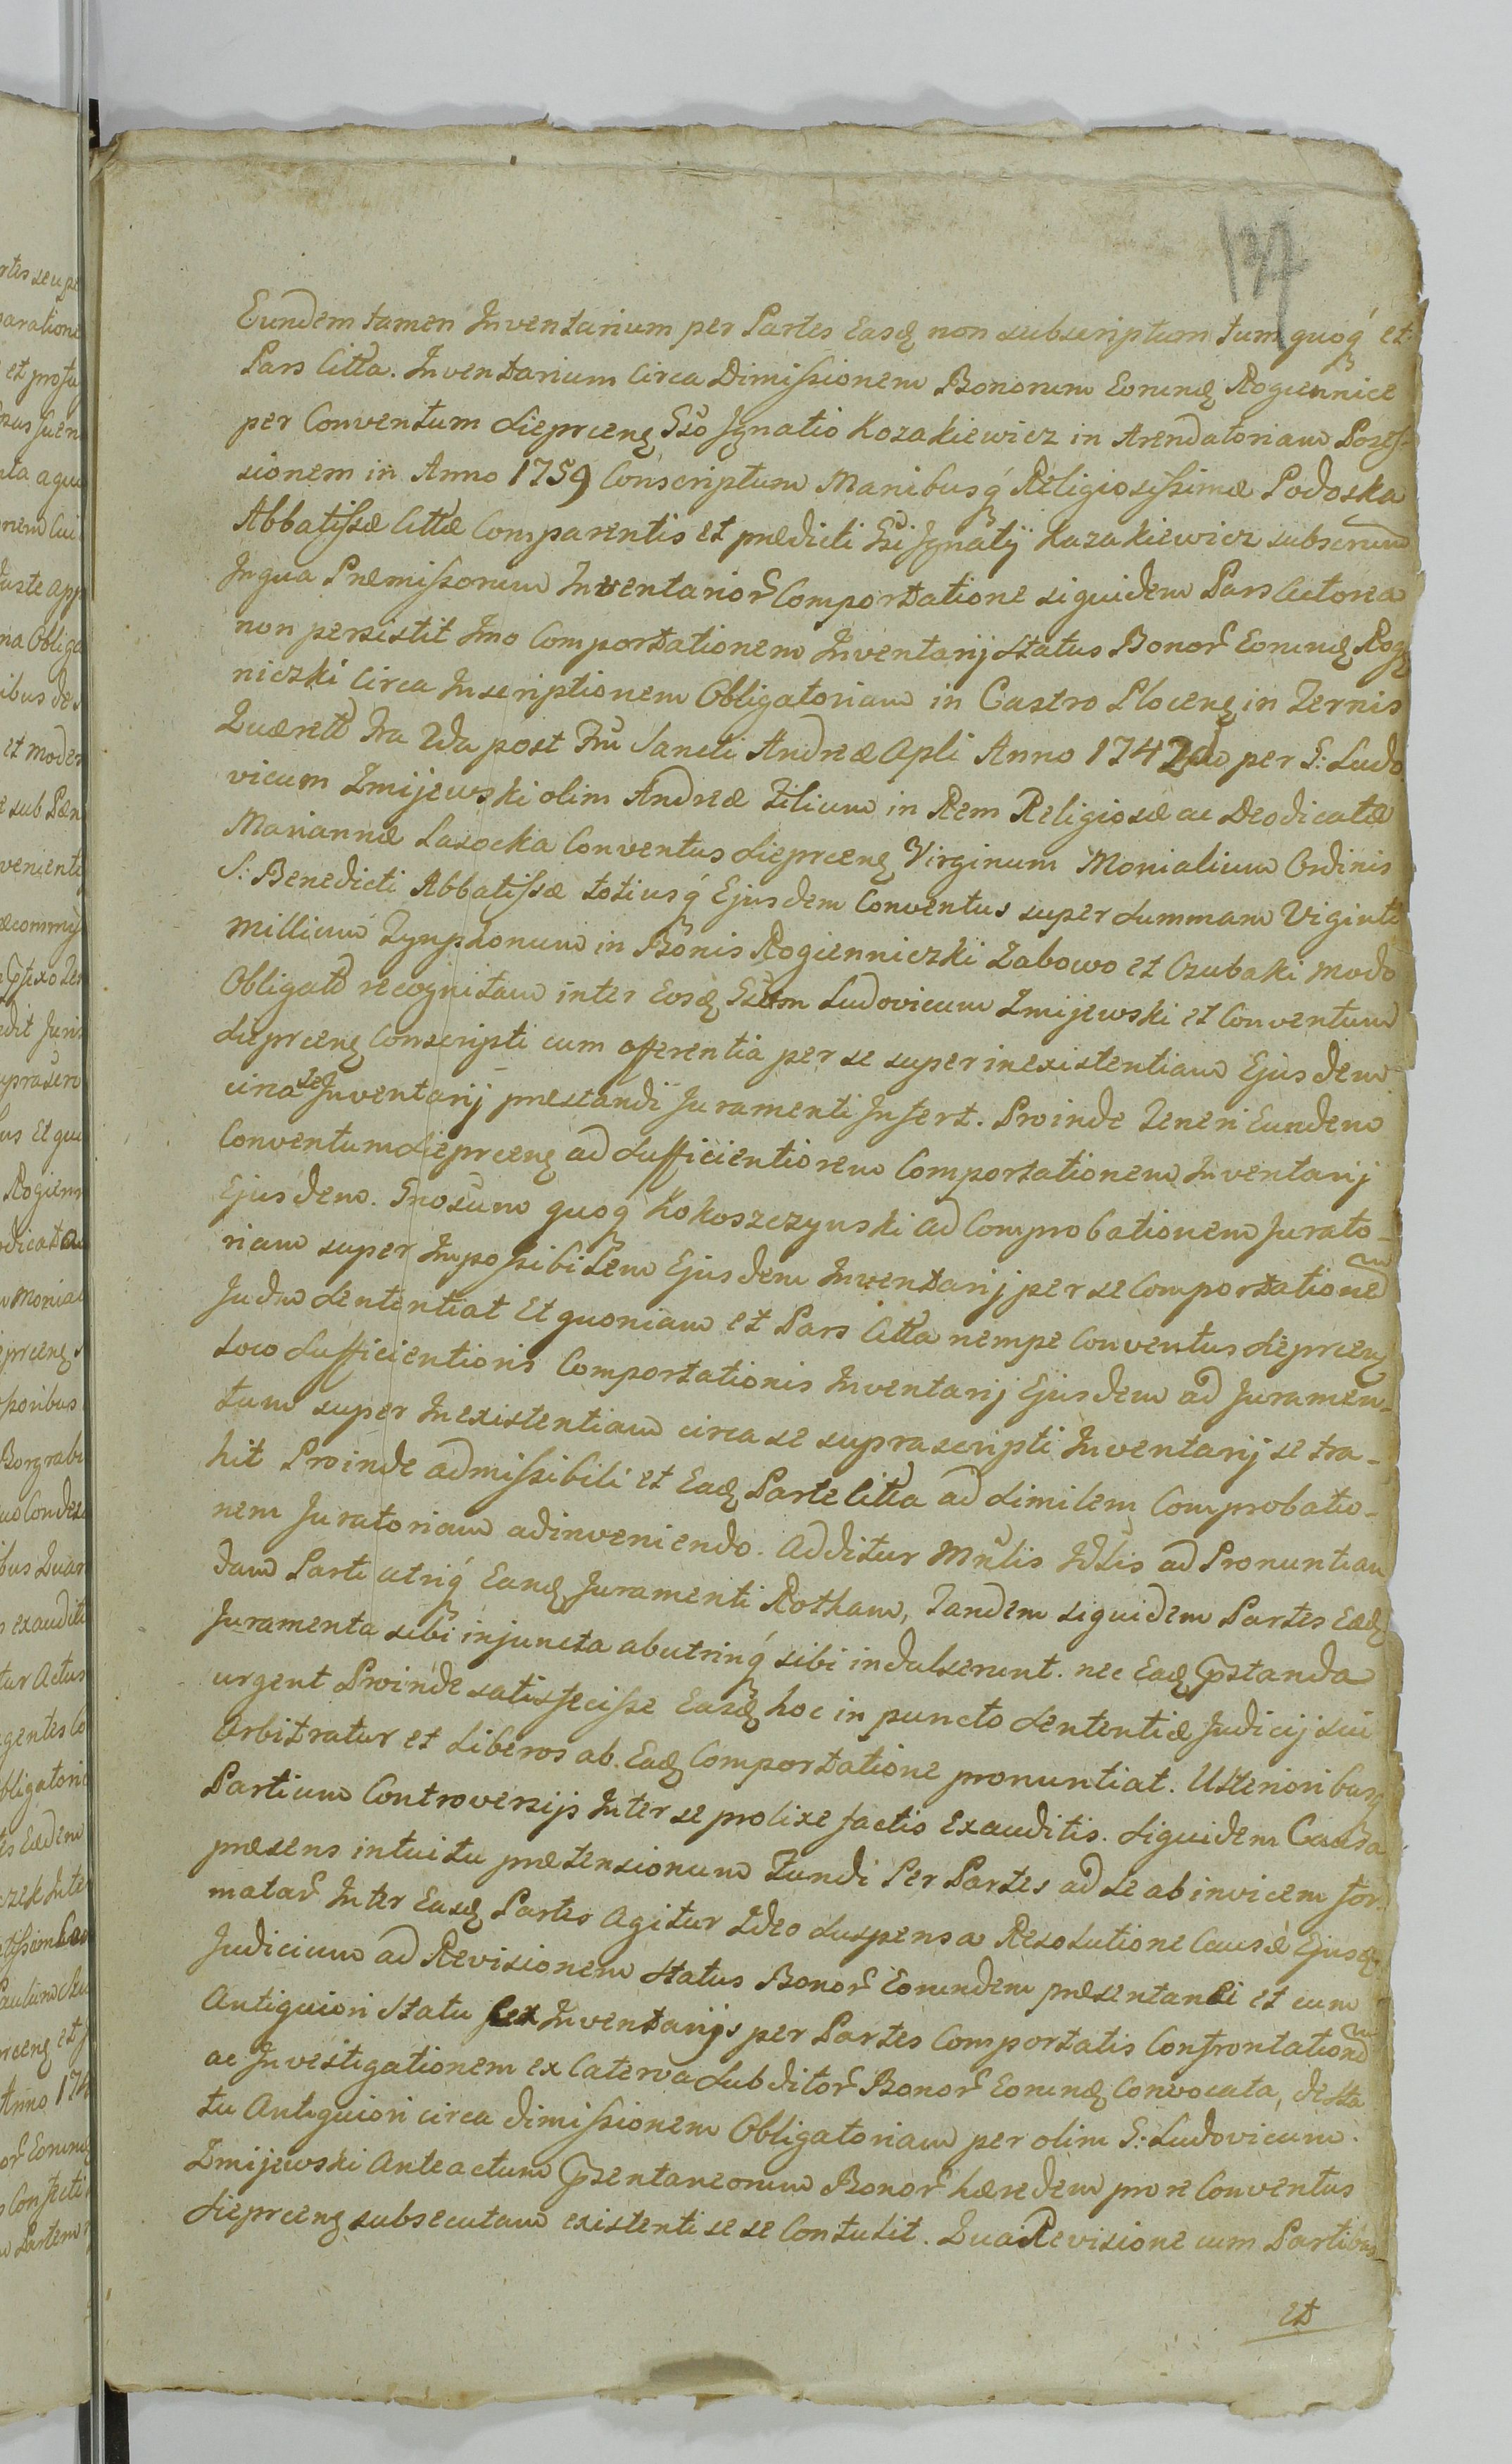 137
Eundem tamen Inventarium per Partes Easd non subscriptum tum quoq́ et
Pars Citta. Inventarium Circa Dimissionem Bonorum Eorund Rogiennice
per Conventum Sieprceñ Gso Ignatio Kozakiewicz in Arendatoriam Posses-
sionem in Anno 1759 Conscriptum Manibusq́ Religiosissimæ Podoska
Abbatissæ Cittæ Comparentis et prædicti Gsi Ignatij Kazakiewicz subscrium
In qua Præmissorum Inventarior Comportatione siquidem Pars Actorea
non persistit Imo Comportationem Inventarij Status Bonor Eorund Rog
niczki Circa Inscriptionem Obligatoriam in Castro Ploceñ in Termis
Querell Fra 2da post Fm Sancti Andreæ Apli Anno 1742do per G: Ludo
vicum Zmijewski olim Andreæ Filium in Rem Religiosæ ac Deodicatæ
Mariannæ Lasocka Conventus Sieprceñ Virginum Monialium Ordinis
S: Benedicti Abbatissæ totiusq́ Ejusdem Conventus super Summam Viginti
Millium Tynphonum in Bonis Rogienniczki Zabowo et Czubaki modo
Obligatt recognitam inter Eosd Gsum Ludovicum Zmijewski et Conventum
Sieprceñ Conscripti cum offerentia per se super inexistentiam Ejusdem
circa se Inventarij præstandi Juramenti Infert. Proinde Teneri Eundem
Conventum Sieprceñ ad Sufficientiorem Comportationem Inventarij
Ejusdem. Gnosum quoq́ Kokoszczynski ad Comprobationem Jurato-
riam super Impossibilem Ejusdem Inventarij per se Comportatione
Judm Sententiat Et quoniam et Pars Citta nempe Conventus Sieprceñ
Loco Sufficientioris Comportationis Inventarij Ejusdem ad Juramen-
tum super Inexistentiam circa se suprascripti Inventarij se tra-
hit Proinde admissibili et Ead Parte Citta ad Similem Comprobatio-
nem Juratoriam adinveniendo. Additur Mnlis Idlis ad Pronuntian
dam Parti utriq́ Eand Juramenti Rotham, Tandem siquidem Partes Eæd
Juramenta sibi injuncta abutrinq́ sibi indulserunt. nec Ead Pstanda
urgent Proinde satisfecisse Easd hoc in puncto Sententiæ Judicij sui
Arbitratur et Liberos ab. Ead Comportatione pronuntiat. Ulterioribusq
Partium Controversijs Inter se prolixe factis Exauditis. Siquidem Causa
præsens intuitu prætensionum Fundi Per Partes ad se ab invicem for-
matar Inter Easd Partes Agitur Ideo Suspensa Resolutione Causæ Ejusd
Judicium ad Revisionem Status Bonor Eorundem præsentanei et cum
Antiquiori Statu sex Inventarijs per Partes Comportatis Confrontatione
ac Investigationem ex Caterva Subditor Bonor Eorund Convocata, de sta
tu Antiquiori circa dimissionem Obligatoriam per olim G: Ludovicum
Zmijewski Anteactum Psentaneorum Bonor hæredem pro re Conventus
Sieprceñ subsecutam existenti sese Contulit. Qua Revisione cum Partibus
et